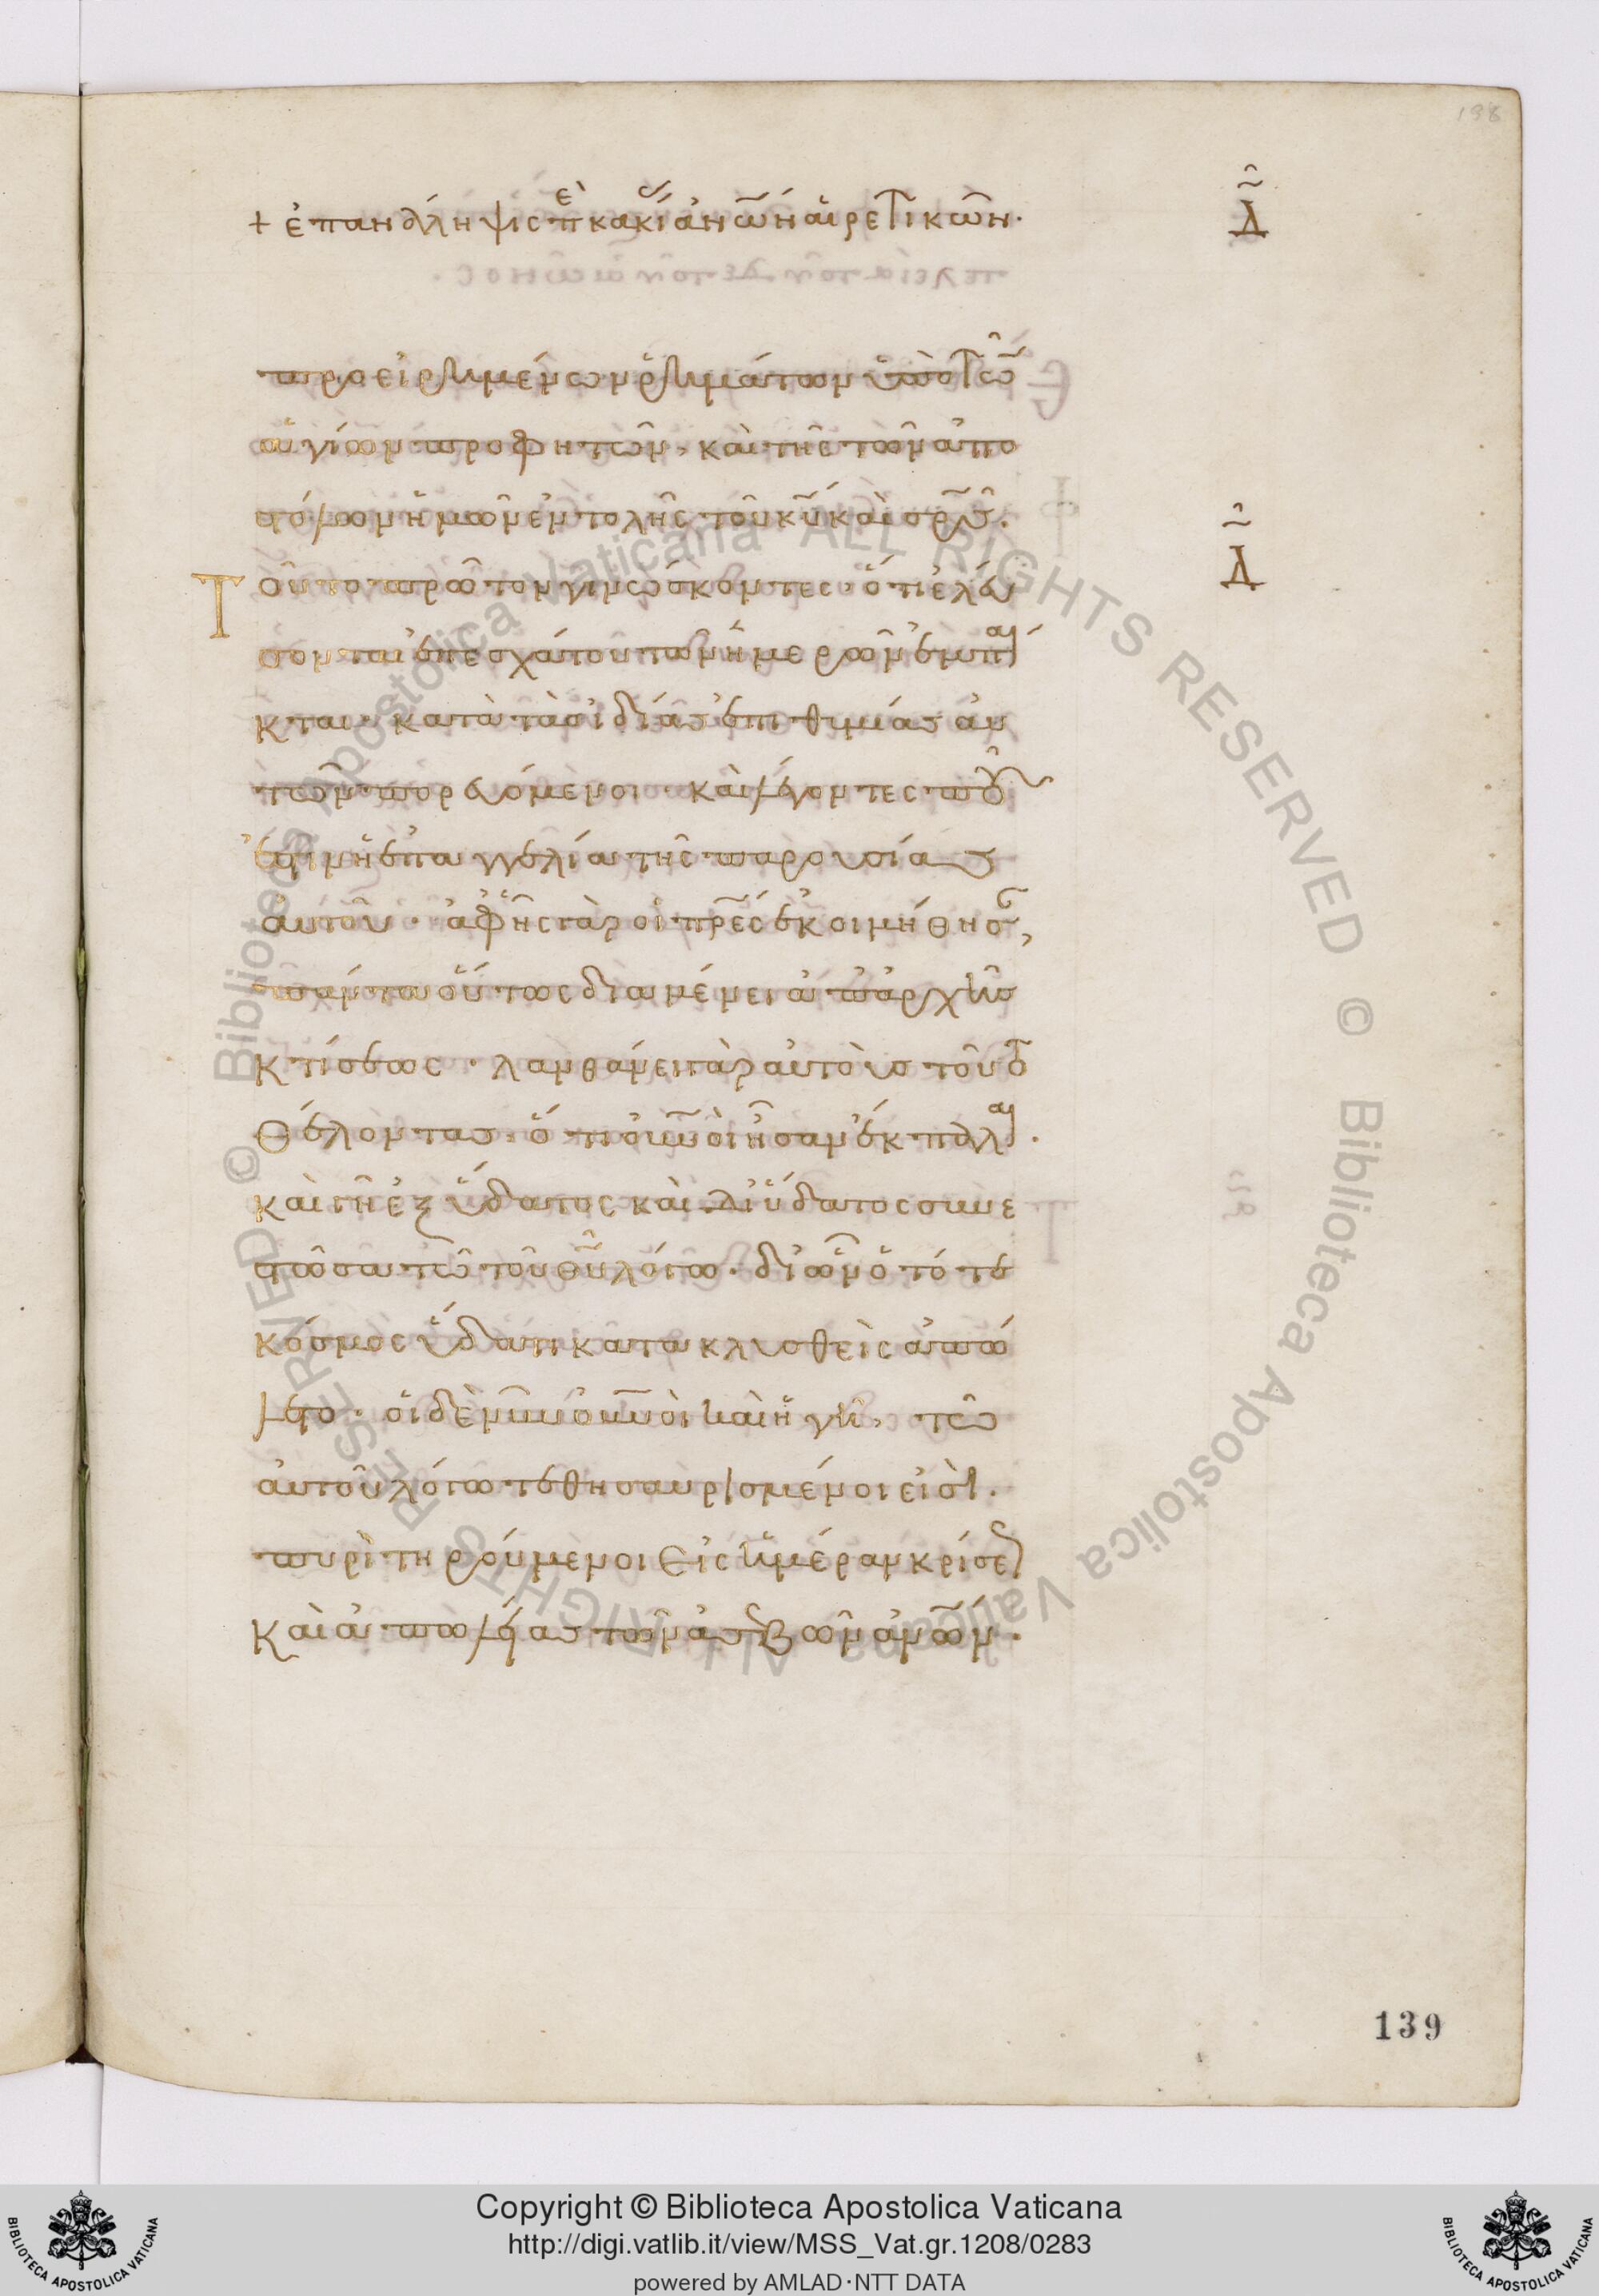 198
+ ἐπανάληψις π ἐ κακίας ἀνῶν αἱρετικῶν. Δ
προειρημένων ῥημάτων ὑπὸ τῶ
ἁγίων προφητῶν, καὶ τῆς τῶν ἀπο
στόλων ἡμῶν ἐντολῆς τοῦ κυ καὶ σρς. Δ
Τοῦτο πρῶτον γινώσκοντες· ὅτι ἐλεύ
σονται ἐπ ἐσχάτου τῶν ἡμερῶν ἐμπαῖ
κται· κατὰ τὰς ἰδίας ἐπιθυμίας αὐ
τῶν πορευόμενοι· καὶ λέγοντες ποῦ
ἐστιν ἡ ἐπαγγελία τῆς παρουσίας
αὐτοῦ· ἀφ ἧς γὰρ οἱ πρες ἐκοιμήθησ,
πάντα οὕτως διαμένει ἀπ ἀρχῆς
κτίσεως· λανθάνει γὰρ αὐτοὺς τοῦτ
θέλοντας· ὅτι οὐνοὶ ἦσαν ἔκπαλαι.
καὶ γῆ ἐξ ὕδατος καὶ δι ὕδατος συνε
στῶσα τῶ τοῦ θυ λόγω· δι ὧν ὁ τότε
κόσμος ὕδατι κατακλυσθεὶς ἀπώ
λετο· οἱ δὲ νῦν οὐνοὶ καὶ ἡ γῆ, τῶ
αὐτοῦ λόγω τεθησαυρισμένοι εἰσὶ.
πυρὶ τηρούμενοι εἰς ἡμέραν κρίσε
καὶ ἀπωλείας τῶν ἀσεβῶν ἀνῶν.
139
© Biblioteca Apostolica Vaticana ALL RIGHTS RESERVED © Biblioteca Apostolica Vaticana ALL RIGHTS RESERVED
Copyright © Biblioteca Apostolica Vaticana
http://digi.vatlib.it/view/MSS_Vat.gr.1208/0283
powered by AMLAD·NTT DATA
BIBLIOTECA APOSTOLICA VATICANA
BIBLIOTECA APOSTOLICA VATICANA